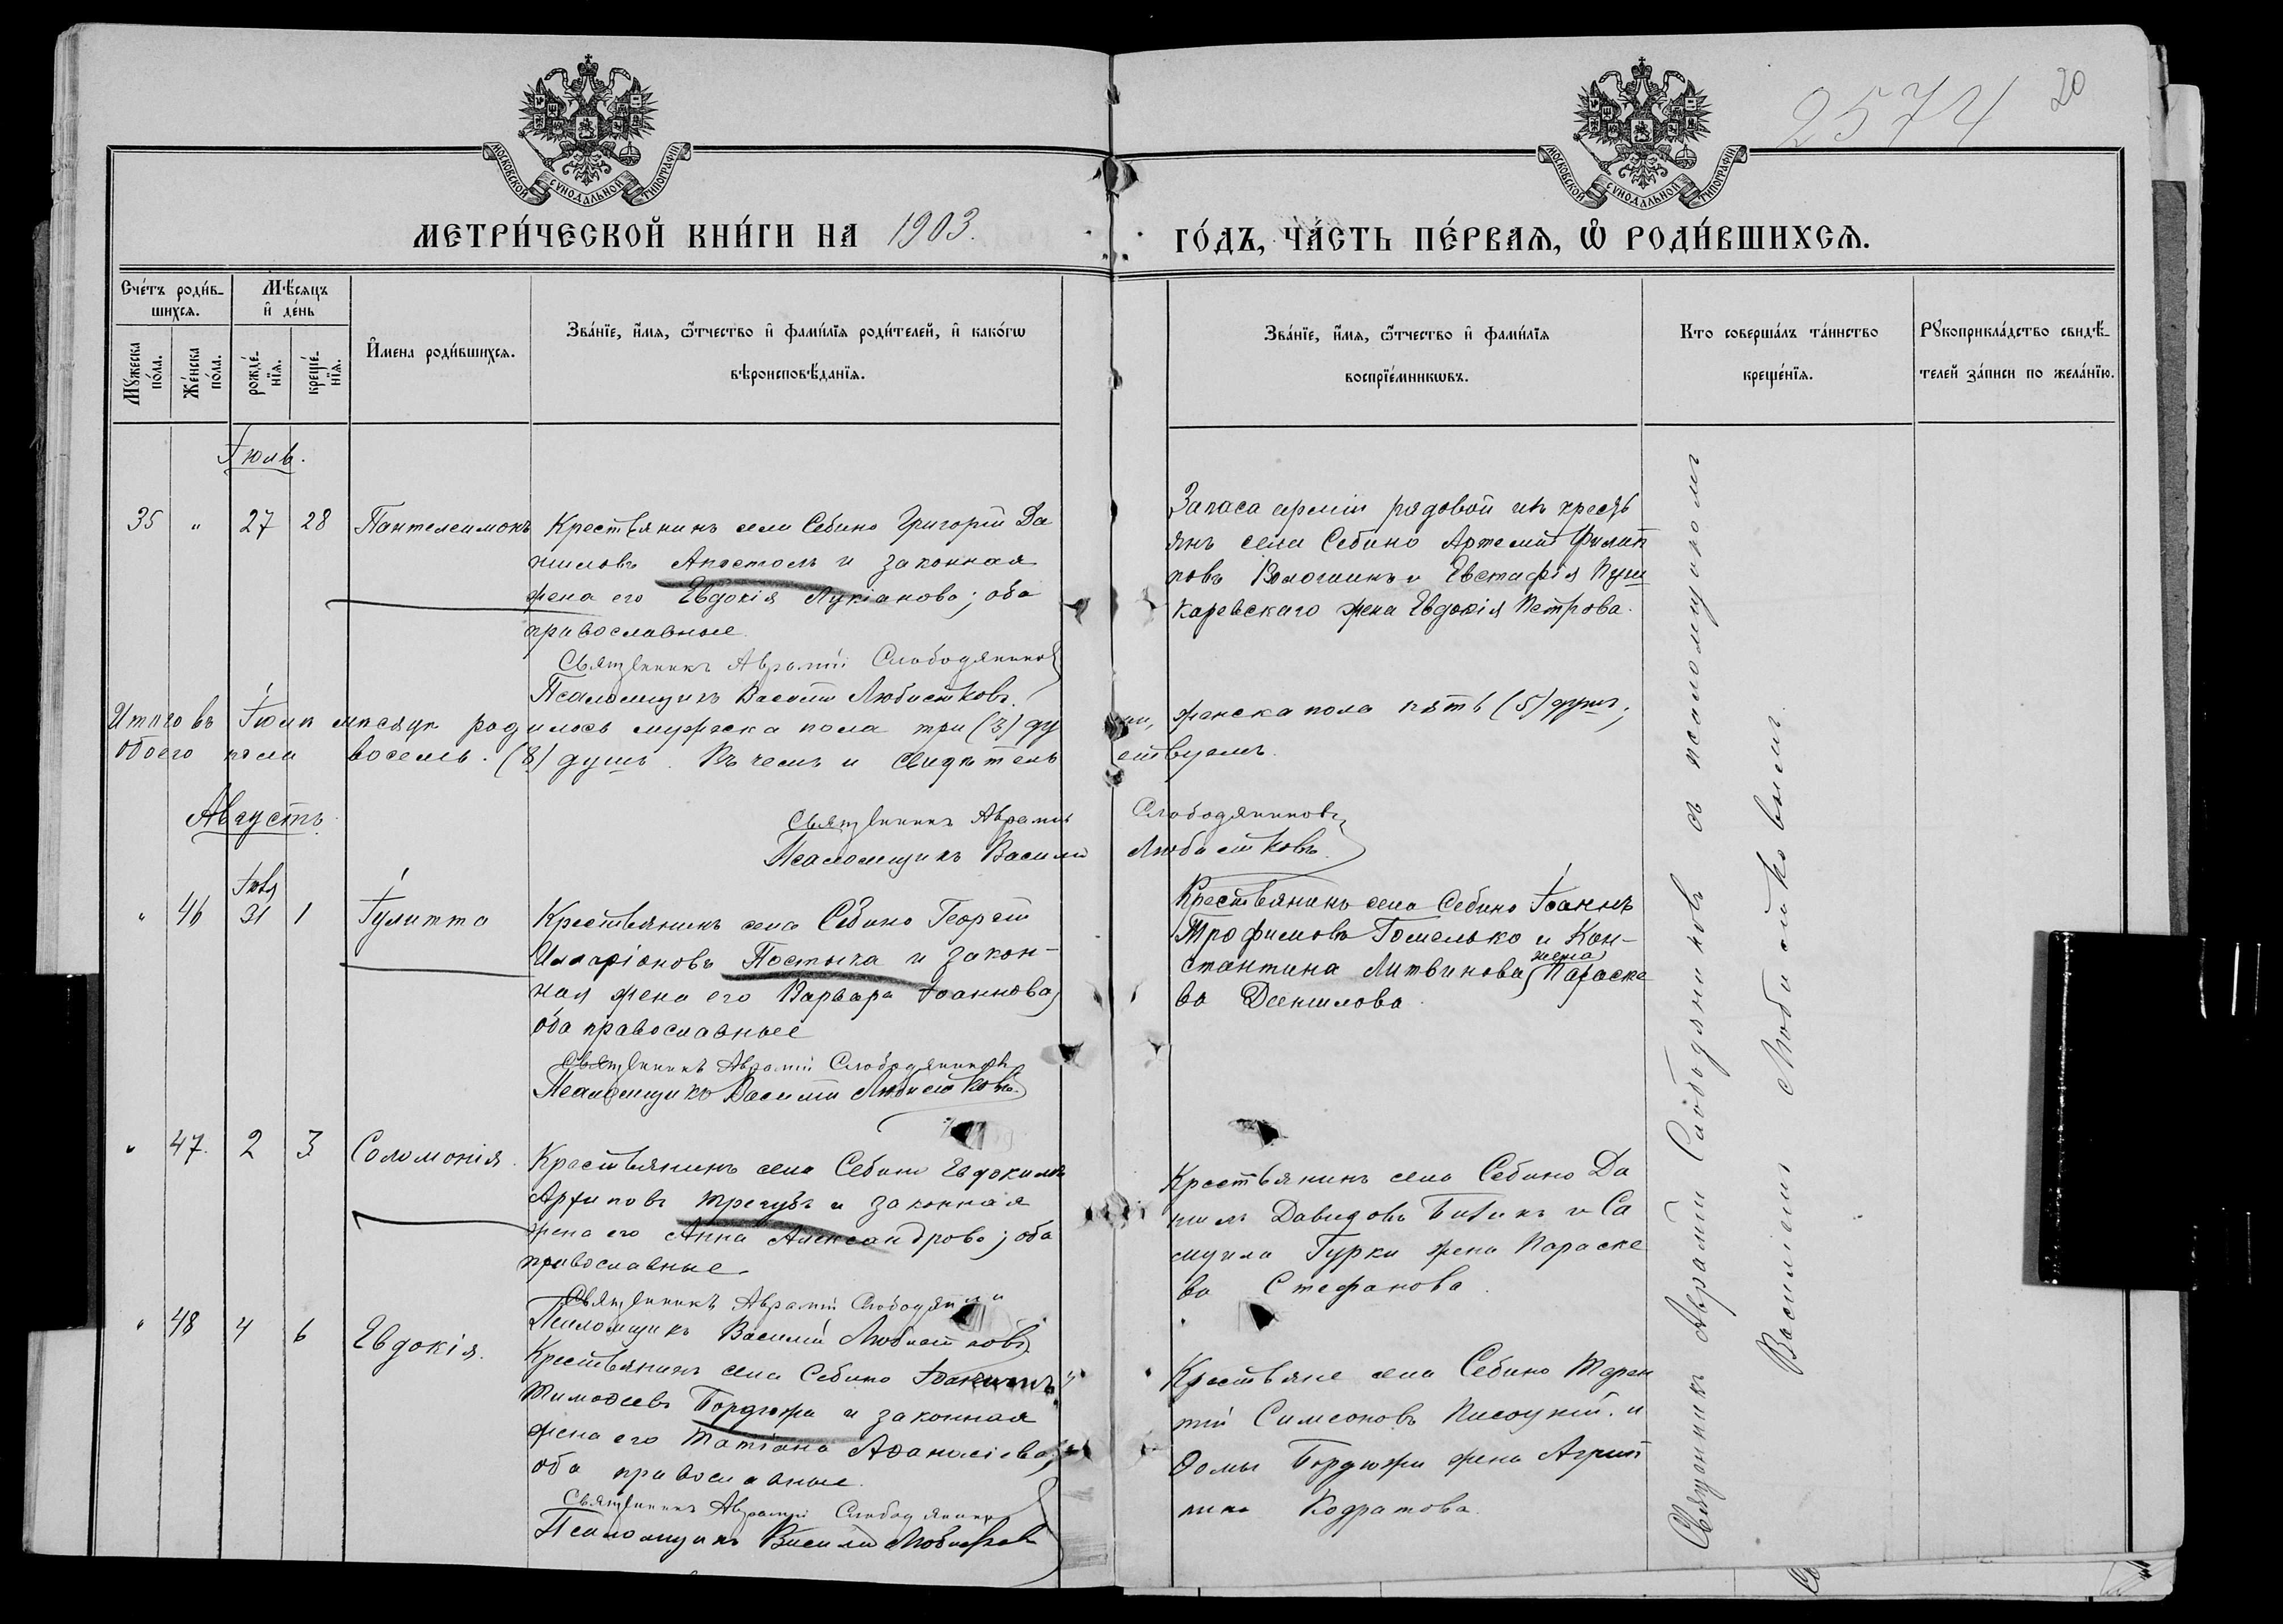 2574
20
МОСКОВСКОЙ СѴНОДАЛЬНОЙ ТИПОГРАФІИ
МОСКОВСКОЙ СѴНОДАЛЬНОЙ ТИПОГРАФІИ
МЕТРИ́ЧЕСКОЙ КНИ́ГИ НА 1903.
ГО́ДЪ, ЧА́СТЬ ПЕ́РВАЯ, Ѡ РОДИ́ВШИХСЯ.
Сче́тъ роди́в-
шихся.
Мꙋ́жеска
по́ла.
Же́нска
по́ла.
Мѣ́сяцъ
и҆ де́нь
рожде́-
нїя.
креще́-
нїя.
И҆мена роди́вшихся.
Зва́нїе, и҆́мя, ѻ҆́тчество и҆ фами́лїя роди́телей, и҆ како́гѡ
вѣроисповѣ́данїя.
Зва́нїе, и҆́мя, ѻ҆́тчество и҆ фами́лїя
воспрїе́мникѡвъ.
Кто соверша́лъ та́инство
креще́нїя.
Рꙋкоприкла́дство свидѣ́-
телей за́писи по жела́нїю.
Іюль.
35 " 27 28 Пантелеимонъ
Крестьянинъ села Себино Григорій Да
ниловъ Апостолъ и законная
жена его Евдокія Лукіанова; оба
православные.
Священникъ Аврамій Слободяниковъ
Псаломщикъ Василій Любистковъ.
Запаса арміи рядовой изъ кресть
янъ села Себино Артемій Филип
повъ Волошинъ и Евстафія Пуш
каревскаго жена Евдокія Петрова.
Итого въ Іюлѣ мѣсяцѣ родилось мужеска пола три (3) ду
ши, женска пола пять (5) душъ;
обоего пола восемь (8) душъ. Въ чемъ и свидѣтель
ствуемъ.
Священникъ Аврамій Слободяниковъ
Псаломщикъ Василій Любистковъ.
Августъ
" 46 Іюля 31 1 Іулитта
Крестьянинъ села Себино Георгій
Илларіоновъ Постыка и закон-
ная жена его Варвара Іоаннова,
оба православные
Священникъ Аврамій Слободяниковъ
Псаломщикъ Василій Любистковъ.
Крестьянинъ села Себино Іоаннъ
Трофимовъ Гомелько и Кон-
стантина Литвинова жена Параске
ва Даніилова.
" 47. 2 3 Соломонія.
Крестьянинъ села Себино Евдокимъ
Архиповъ Трегубъ и законная
жена его Анна Александрова; оба
православные.
Священникъ Аврамій Слободяник
Псаломщикъ Василій Любистковъ
Крестьянинъ села Себино Да
ніилъ Давидовъ и Са
муила Гурки жена Параске
ва Стефанова.
" 48 4 6 Евдокія.
Крестьянинъ села Себино
Тимоѳеевъ Бордюжа и законная
жена его Татіана Аѳанасіева,
оба православные.
Священникъ Аврамій Слободяник
Псаломщикъ Василій Любистков
Крестьяне села Себино Терен
тій Симеоновъ Писоцкій и
Ѳомы Бордюжи жена Агрип
пина Кодратова.
Священникъ Аврамій Слободяниковъ съ псаломщикомъ
Василіемъ Любистковымъ.